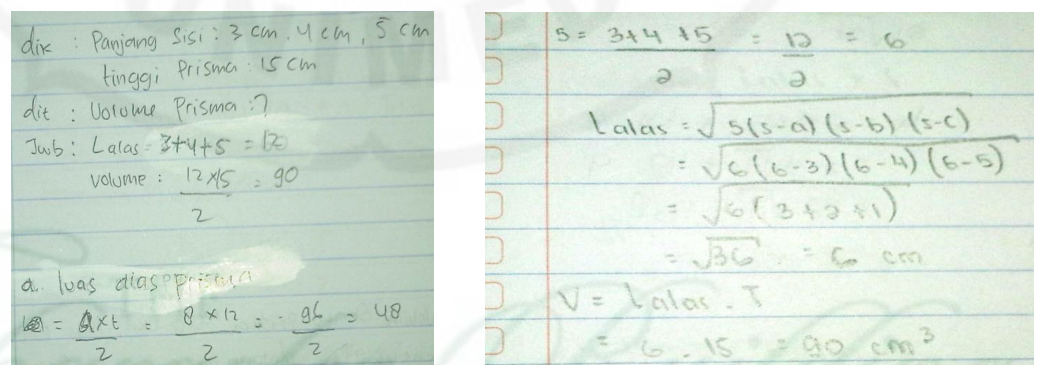 dik : Panjang Sisi : 3 cm, 4 cm, 5 cm
tinggi Prisma : 15 cm
dit : Volume Prisma : ?
Jwb : Lalas = 3+4+5 = 12
volume : 12x15 / 2 = 90
a. luas alas prisma
= axt / 2 = 8 x 12 / 2 = 96 / 2 = 48
S = 3+4+5 / 2 = 12 / 2 = 6
Lalas = √s(s-a)(s-b)(s-c)
= √6(6-3)(6-4)(6-5)
= √6(3+2+1)
= √36 = 6 cm
V = Lalas . T
= 6 . 15 = 90 cm³